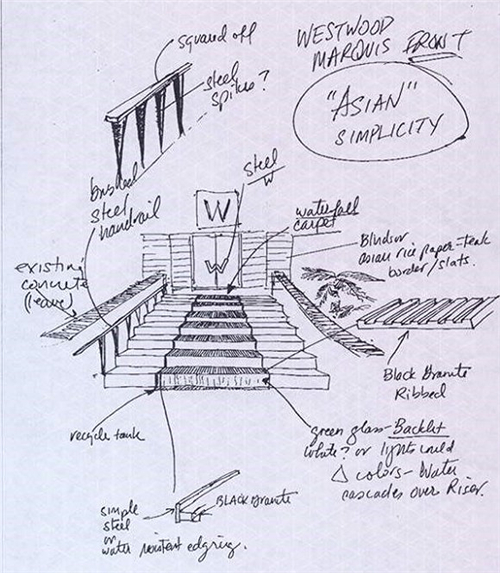 squared off
steel
spikes?
WESTWOOD
MARQUIS FRONT
"ASIAN"
SIMPLICITY
brushed
steel
handrail
steel
W
W
W
waterfall
carpet
Blinds or
asian rice paper-teak
border/slats.
existing
concrete
(leave)
Black Granite
Ribbed
recycle tank
green glass-Backlit
white? or lights could
Δ colors-Water
cascades over Riser.
simple
steel
or
water resistent edging.
BLACK Granite